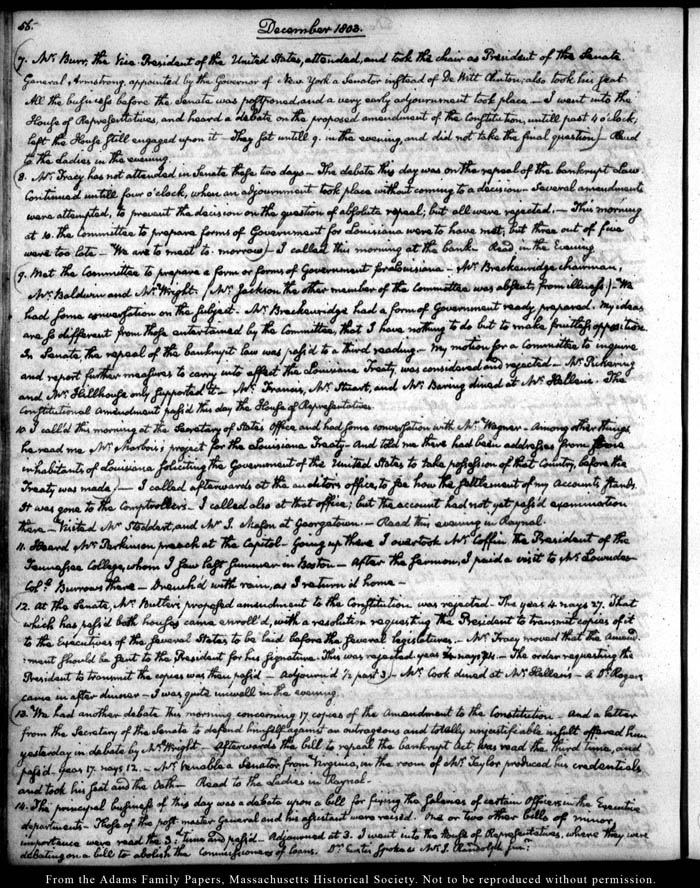 58.
December 1803.
7. Mr. Burr, the Vice President of the United States, attended, and took the chair as President of the Senate
General Armstrong, appointed by the Governor of New York a Senator instead of De Witt Clinton, also took his seat
All the business before the Senate was postponed, and a very early adjournment took place — I went into the
House of Representatives, and heard a debate on the proposed amendment of the Constitution, untill past 4 o'clock,
left the House still engaged upon it — They sat untill 9. in the evening, and did not take the final question) — Read
to the Ladies in the evening.
8. Mr. Tracy has not attended in Senate these two days — The debate this day was on the repeal of the bankrupt Law
Continued untill four o'clock, when an adjournment took place without coming to a decision — Several amendments
were attempted, to prevent the decision on the question of absolute repeal; but all were rejected. — This morning
at 10. the Committee to prepare forms of Government for Louisiana were to have met, but three out of five
were too late — We are to meet to-morrow) — I called this morning at the bank — Read in the Evening
9. Met the Committee to prepare a form or forms of Government for Louisiana — Mr. Breckenridge chairman,
Mr. Baldwin and Mr. Wright. (Mr. Jackson the other member of the Committee was absent from illness.) — We
had some conversation on the subject. Mr. Breckenridge had a form of Government ready prepared. My ideas
are so different from those entertained by the Committee, that I have nothing to do but to make fruitless opposition.
In Senate, the repeal of the bankrupt law was pass'd to a third reading — My motion for a Committee to inquire
and report further measures to carry into effect the Louisiana Treaty, was considered and rejected — Mr. Pickering
and Mr. Hillhouse only supported it — Mr. Francis, Mr. Stuart, and Mr. Baring dined at Mr. Hellen's. The
Constitutional Amendment pass'd this day the House of Representatives.
10. I call'd this morning at the Secretary of State's Office, and had some conversation with Mr. Wagner — Among other things
he read me Mr. Marbois's project for the Louisiana Treaty — And told me there had been addresses from some
inhabitants of Louisiana soliciting the Government of the United States to take possession of that Country, before the
Treaty was made) — I called afterwards at the auditors office, to see how the settlement of my accounts stands,
It was gone to the Comptroller's — I called also at that office; but the account had not yet pass'd examination
there — Visited Mr. Stoddert, and Mr. J. Mason at Georgetown. — Read this evening in Raynal.
11. Heard Mr. Parkinson preach at the Capitol — Going up there I overtook Mr. Coffin, the President of the
Tennessee College, whom I saw last Summer in Boston — After the Sermon, I paid a visit to Mr. Lowndes
Coll. Burrows there — Drench'd with rain, as I return'd home —
12. At the Senate, Mr. Butler's proposed amendment to the Constitution was rejected — The yeas 4 nays 27. That
which has pass'd both houses came enroll'd, with a resolution requesting the President to transmit copies of it
to the Executives of the several States to be laid before the several legislatures. — Mr. Tracy moved that the Amend-
-ment should be sent to the President for his signature. This was rejected — The order requesting the
President to transmit the copies was then pass'd — Adjourn'd ½ past 3) — Mr. Cook dined at Mr. Hellen's — & Dr. Rogers
came in after dinner — I was quite unwell in the evening.
13. We had another debate this morning concerning 17 copies of the Amendment to the Constitution. And a letter
from the Secretary of the Senate to defend himself against an outrageous and totally unjustifiable insult offered him
yesterday in debate by Mr. Wright — Afterwards the bill to repeal the bankrupt Act, was read the third time, and
pass'd. yeas 17. nays 12. — Mr. Venable a Senator from Virginia, in the room of Mr. Taylor produced his credentials
and took his seat and the Oath — Read to the Ladies in Raynal.
14. The principal business of this day was a debate upon a bill for fixing the Salaries of certain Officers in the Executive
departments — Those of the post-master General and his assistant were raised. One or two other bills of minor
importance were read the 3d time and pass'd — Adjourned at 3. I went into the House of Representatives, where they were
debating on a bill to abolish the Commissioners of Loans. Dr. Eustis spoke & Mr. J. Randolph junr.
From the Adams Family Papers, Massachusetts Historical Society. Not to be reproduced without permission.